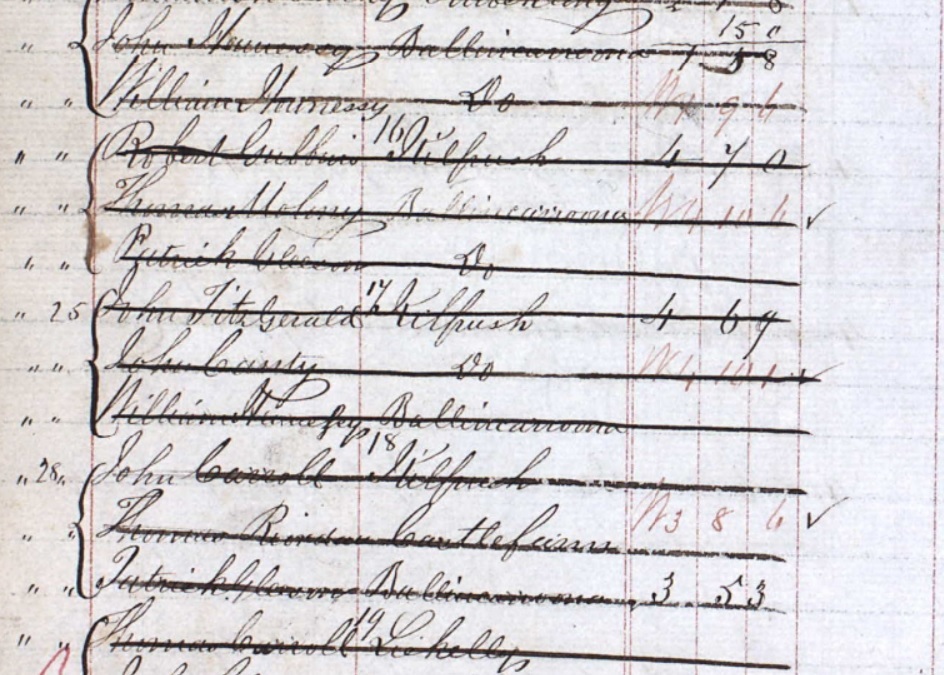 15 0
" John Hennessy Ballincarroona 1 5 8
" " William Hennessy Do 9 6
" " Robert Gubbins 16 Kilfrush 4 7 0
" " Thomas Molony Ballincarroona 4 10 6 ✓
" " Patrick Gleeson Do
" 25 John Fitzgerald 17 Kilfrush 4 6 9
" " John Canty Do 4 10 1 ✓
" " William Hennessy Ballincarroona
" 28 " John Carroll 18 Kilfrush
" " Thomas Riordan Castlefarm 3 8 6 ✓
" " Patrick Gleeson Ballincarroona 3 5 3
" " Thomas Carroll 19 Lickelly